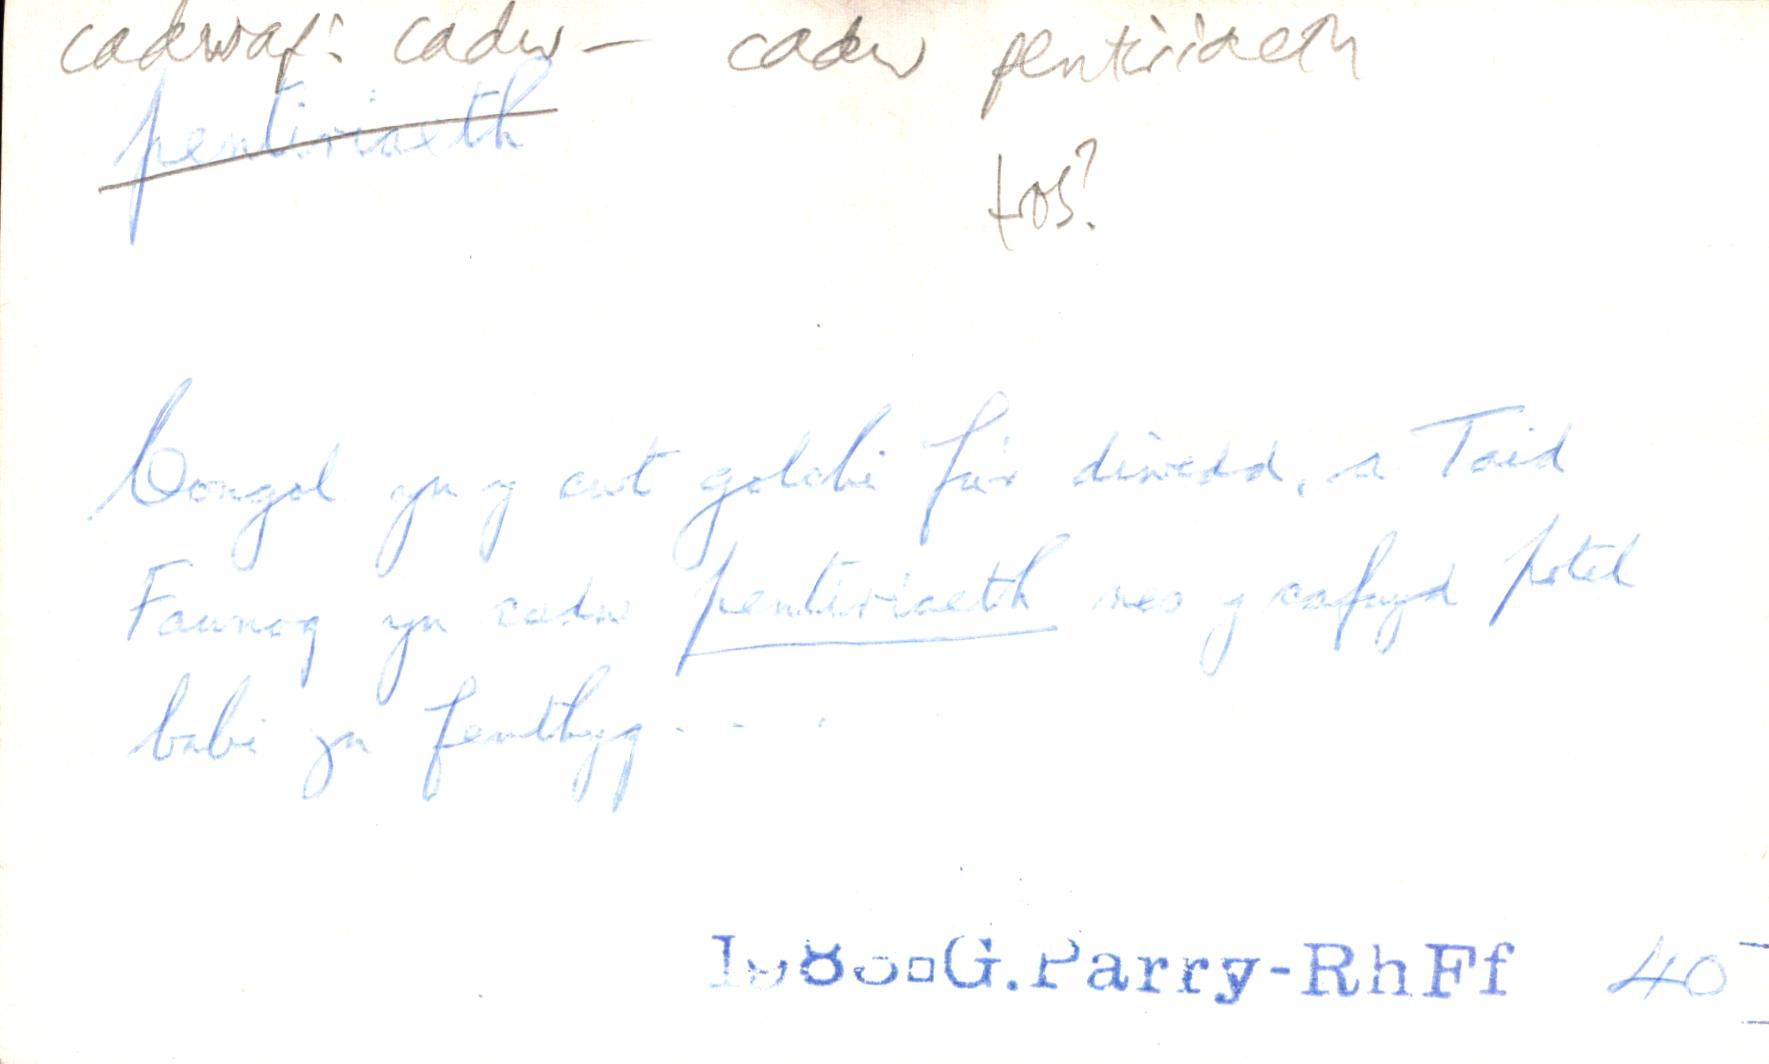 cadwaf: cadw — cadw pentiriaeth
pentiriaeth
tros?
Congol yn y cwt golchi fu'r diwedd, a Taid
Fawnog yn cadw pentiriaeth nes y cafwyd potel
babi yn fenthyg . . . .
G.Parry-RhFf 40